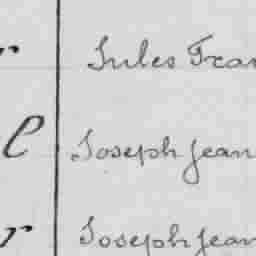 r Jules Fran
l Joseph Jean
r Joseph Jean